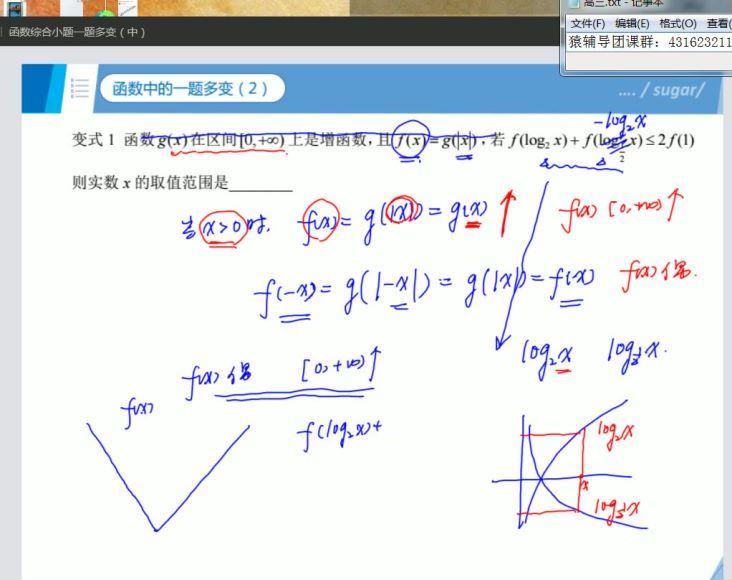 高三.txt - 记事本
函数综合小题一题多变（中）
文件(F) 编辑(E) 格式(O) 查看(
猿辅导团课群: 431623211
函数中的一题多变（2）
.... / sugar/
-log₂x
变式 1 函数 g(x) 在区间[0,+∞) 上是增函数，且 f(x)=g(|x|)，若 f(log₂ x)+f(log½ x)≤2f(1)
则实数 x 的取值范围是________
当 x>0 时, f(x)=g(|x|)=g(x) ↑ f(x) [0,+∞)↑
f(-x)=g(|-x|)=g(|x|)=f(x) f(x)偶.
log₂x log½x.
f(x)偶 [0,+∞)↑
f(x)
f(log₂x)+
log₂x
x
log½x